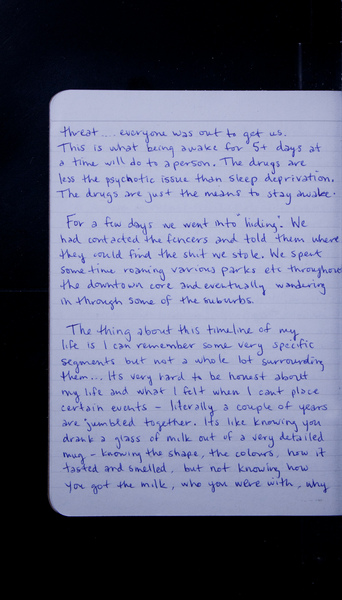 threat .... everyone was out to get us.
This is what being awake for 5+ days at
a time will do to a person. The drugs are
less the psychotic issue than sleep deprivation.
The drugs are just the means to stay awake.
For a few days we went into "hiding". We
had contacted the fencers and told them where
they could find the shit we stole. We spent
some time roaming various parks etc throughout
the downtown core and eventually wandering
in through some of the suburbs.
The thing about this timeline of my
life is I can remember some very specific
segments but not a whole lot surrounding
them... Its very hard to be honest about
my life and what I felt when I cant place
certain events - literally a couple of years
are jumbled together. Its like knowing you
drank a glass of milk out of a very detailed
mug - knowing the shape, the colours, how it
tasted and smelled, but not knowing how
you got the milk, who you were with, why